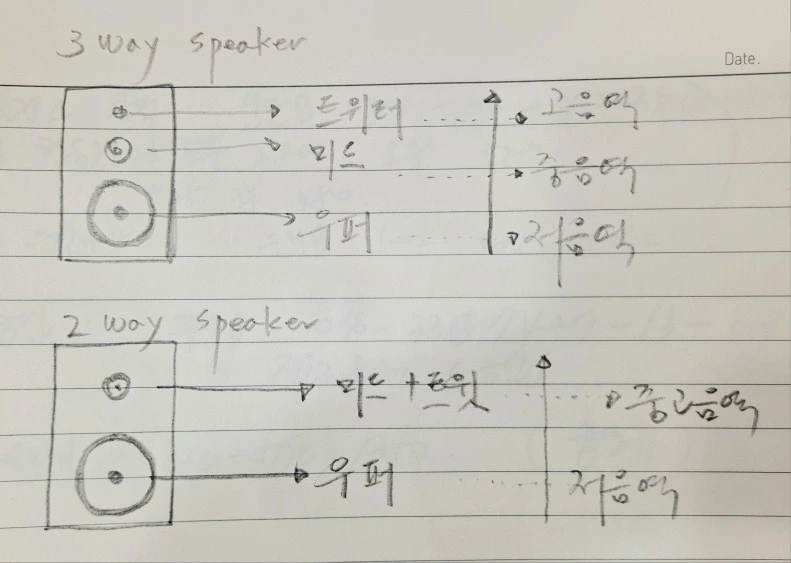 3 way speaker
Date.
트위터 고음역
미드 중음역
우퍼 저음역
2 way speaker
미드 + 트윗 중고음역
우퍼 저음역